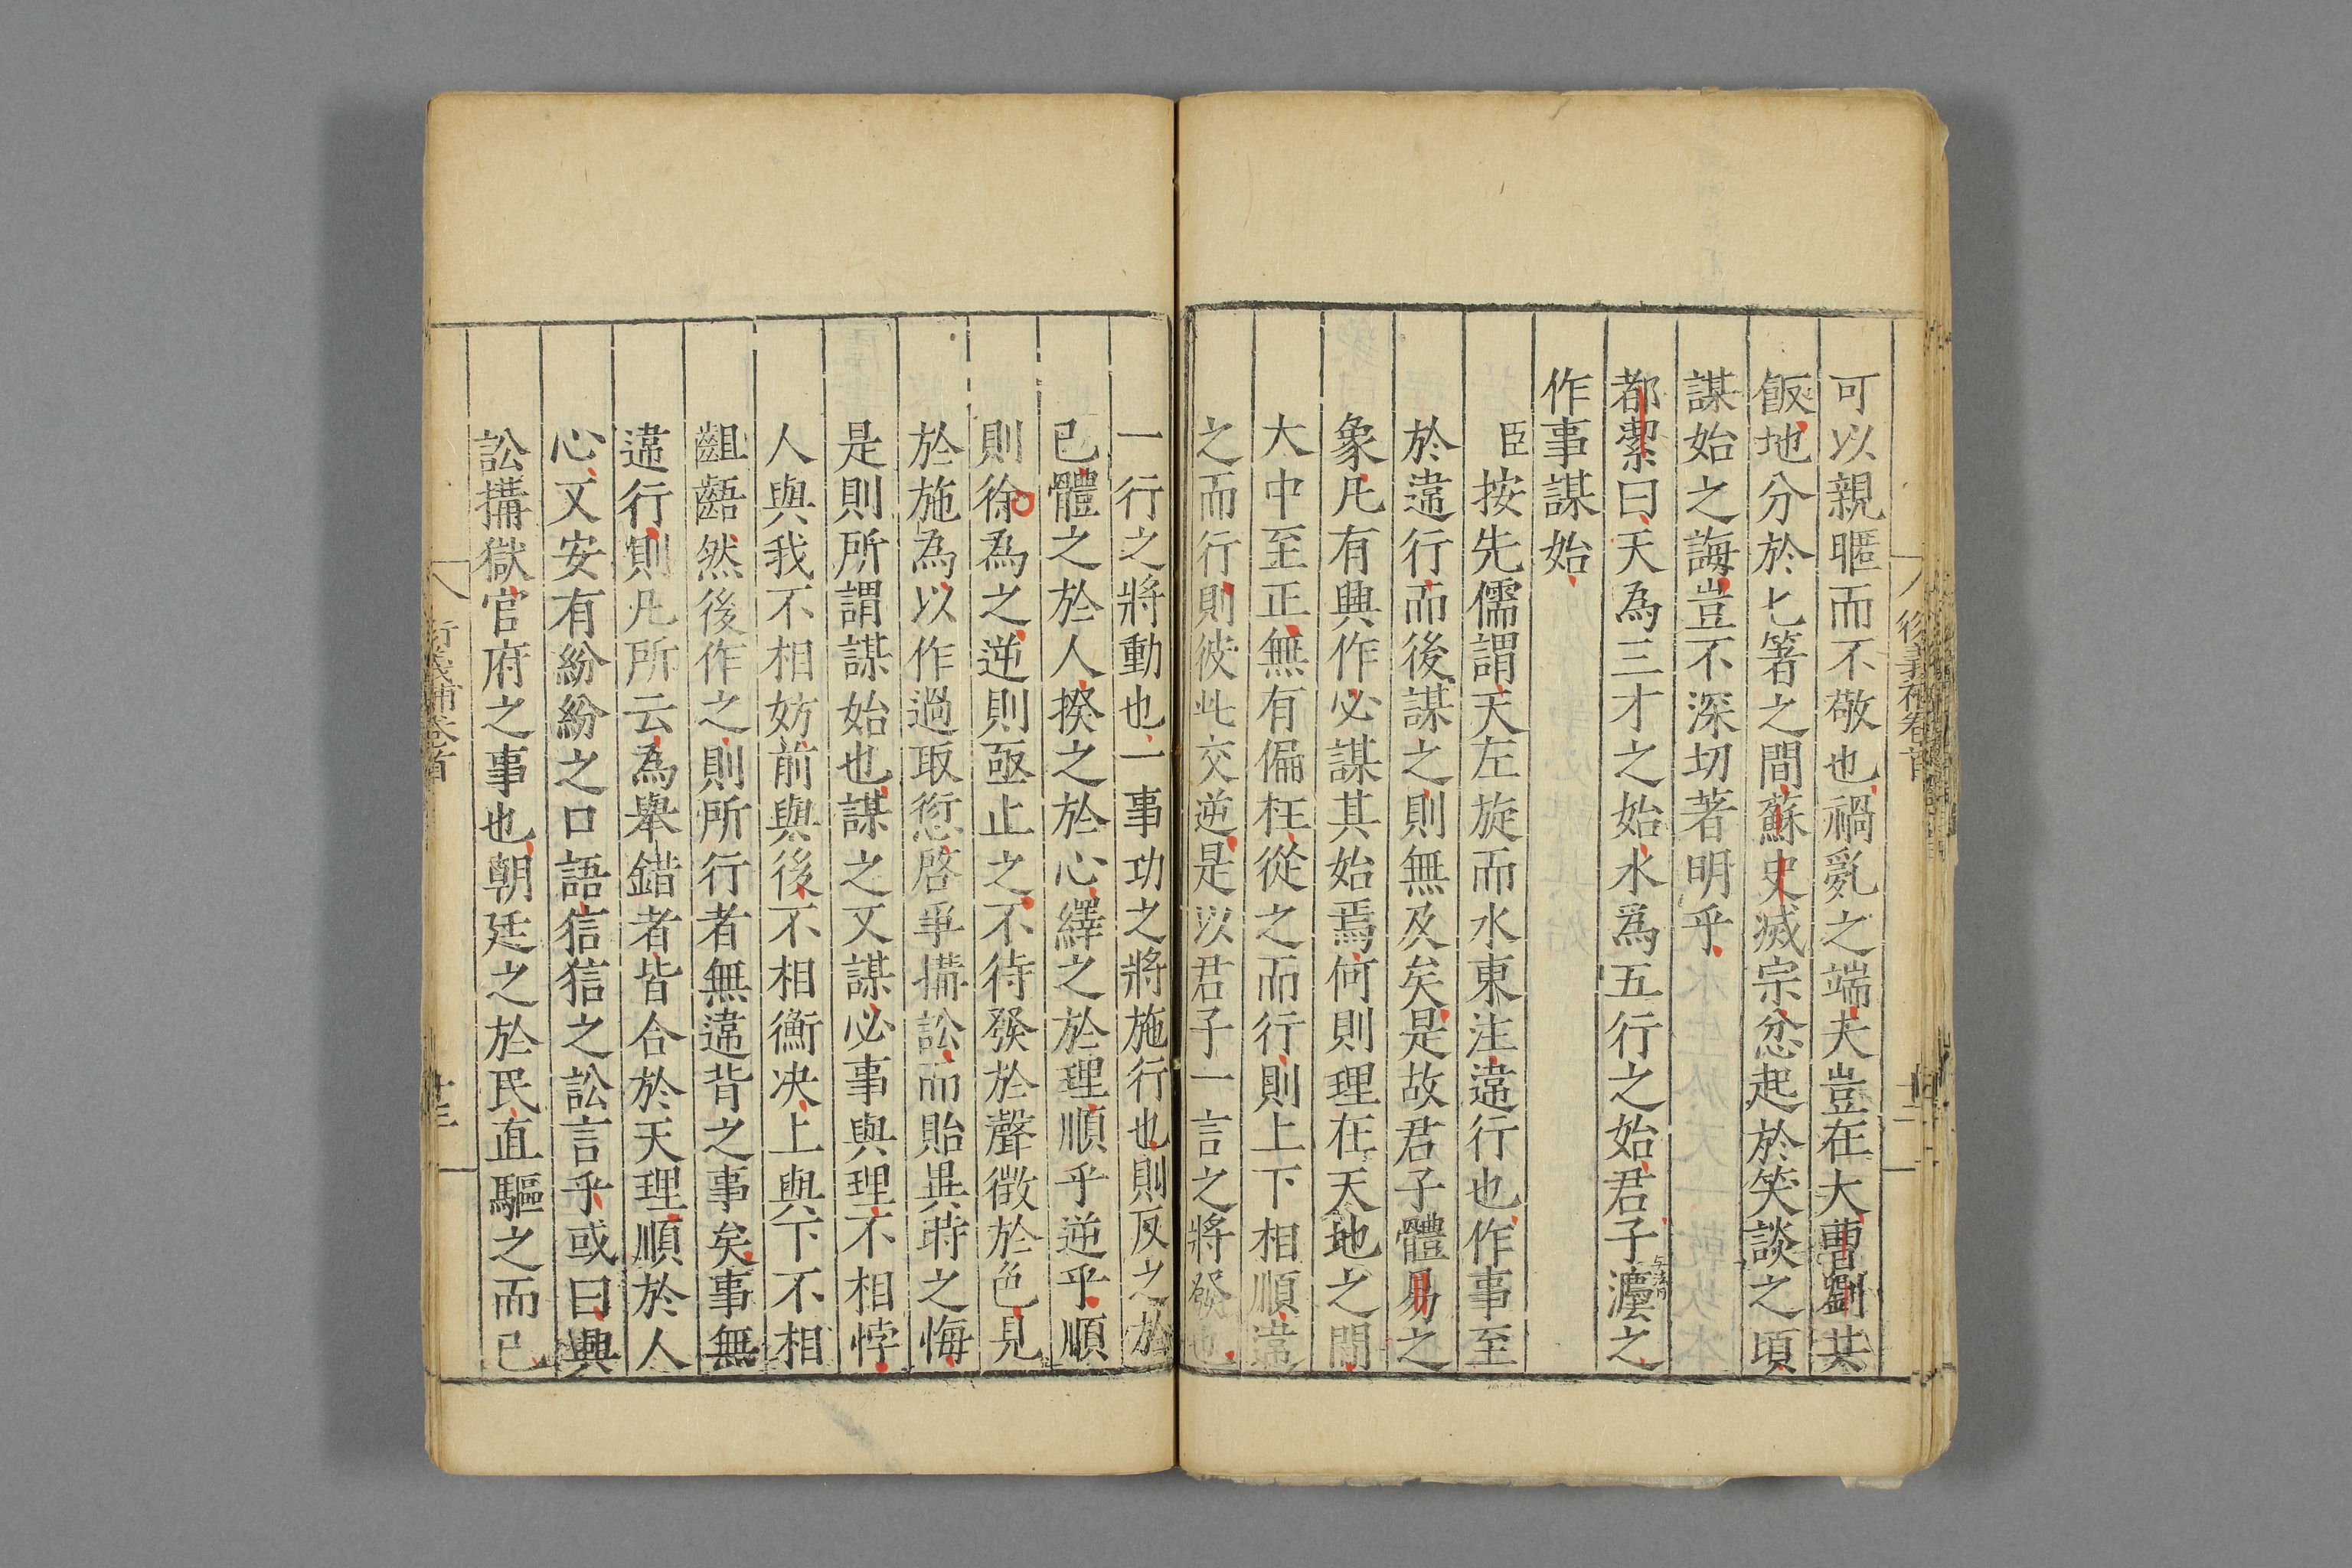 可以親暱而不敬也禍亂之端夫豈在大曹劉共
飯地分於匕箸之間蘇史滅宗忿起於笑談之頃
謀始之誨豈不深切著明乎
都絜曰天為三才之始水為五行之始君子灋之
作事謀始
臣按先儒謂天左旋而水東注違行也作事至
於違行而後謀之則無及矣是故君子體易之
象凡有興作必謀其始焉何則理在天地之間
大中至正無有偏枉從之而行則上下相順違
之而行則彼此交逆是以君子一言之將發也
後義補卷首
一行之將動也一事功之將施行也則反之於
已體之於人揆之於心繹之於理順乎逆乎順
則徐為之逆則亟止之不待發於聲徵於色見
於施為以作過取愆啓爭搆訟而貽異時之悔
是則所謂謀始也謀之又謀必事與理不相悖
人與我不相妨前與後不相衡决上與下不相
齟齬然後作之則所行者無違背之事矣事無
違行則凡所云為舉錯者皆合於天理順於人
心又安有紛紛之口語狺狺之訟言乎或曰興
訟搆獄官府之事也朝廷之於民直驅之而已
衍義補卷首